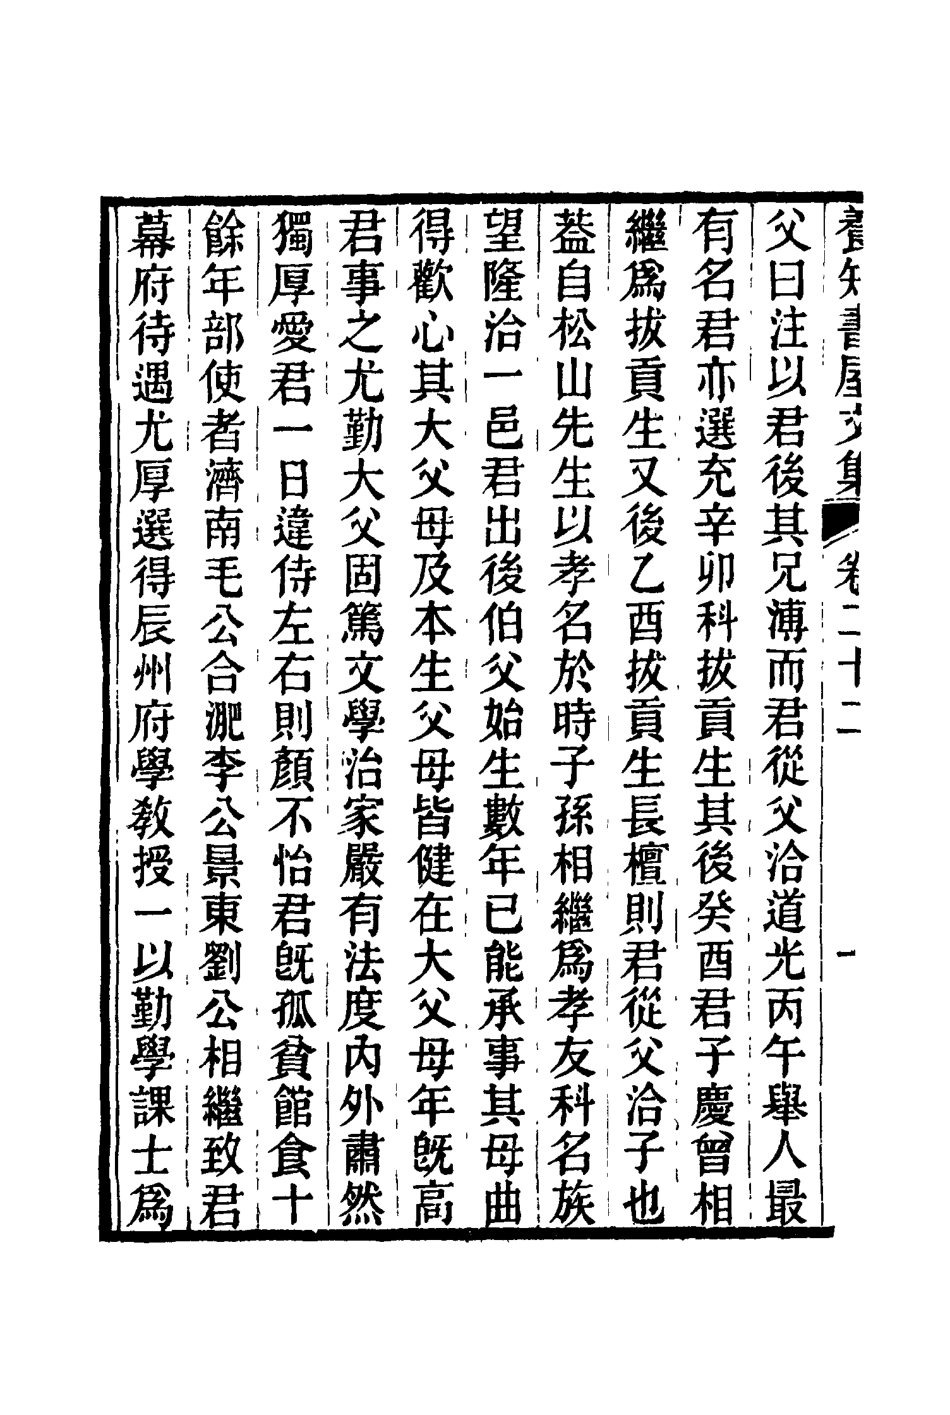 養知書屋文集 卷二十二 一
父曰注以君後其兄溥而君從父洽道光丙午舉人最
有名君亦選充辛卯科拔貢生其後癸酉君子慶曾相
繼爲拔貢生又後乙酉拔貢生長檀則君從父洽子也
葢自松山先生以孝名於時子孫相繼爲孝友科名族
望隆洽一邑君出後伯父始生數年已能承事其母曲
得歡心其大父母及本生父母皆健在大父母年旣高
君事之尤勤大父固篤文學治家嚴有法度內外肅然
獨厚愛君一日違侍左右則顏不怡君旣孤貧館食十
餘年部使者濟南毛公合淝李公景東劉公相繼致君
幕府待遇尤厚選得辰州府學教授一以勤學課士爲